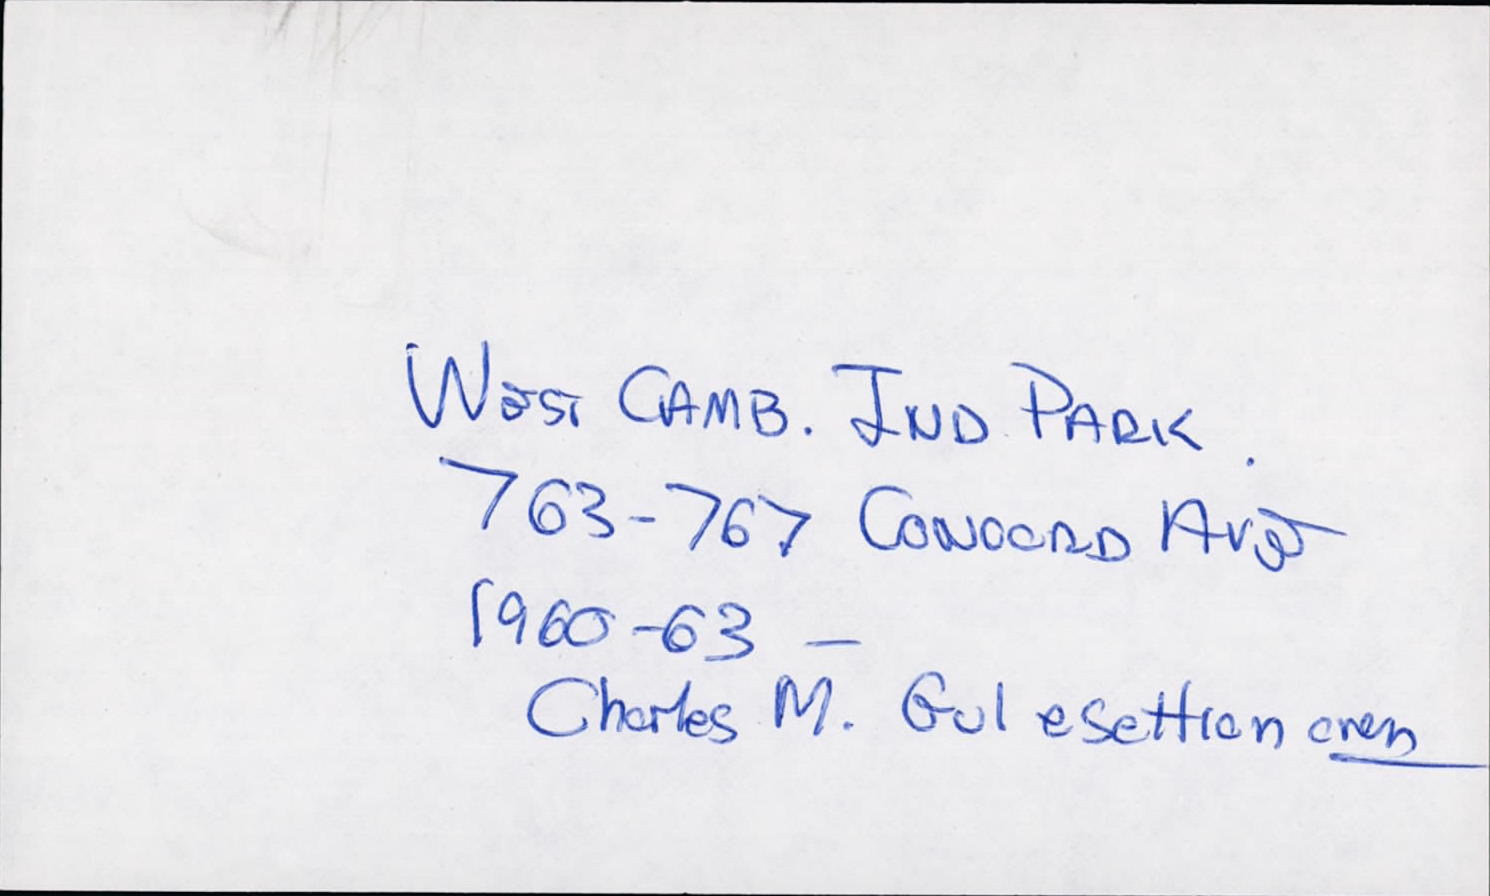 West CAMB. IND PARK.
763-767 CONCORD AVE
1960-63 —
Charles M. Gulesettian